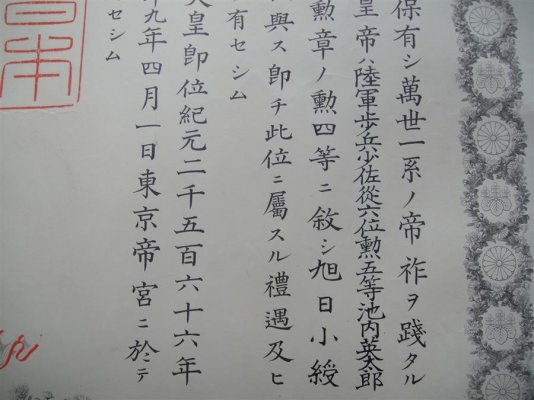 保有シ萬世一系ノ帝祚ヲ踐タル
皇帝ハ陸軍歩兵少佐從六位勲五等池内英太郎
勲章ノ勲四等ニ敘シ旭日小綬
與ス卽チ此位ニ屬スル禮遇及ヒ
有セシム
天皇卽位紀元二千五百六十六年
十九年四月一日東京帝宮ニ於テ
セシム
日本